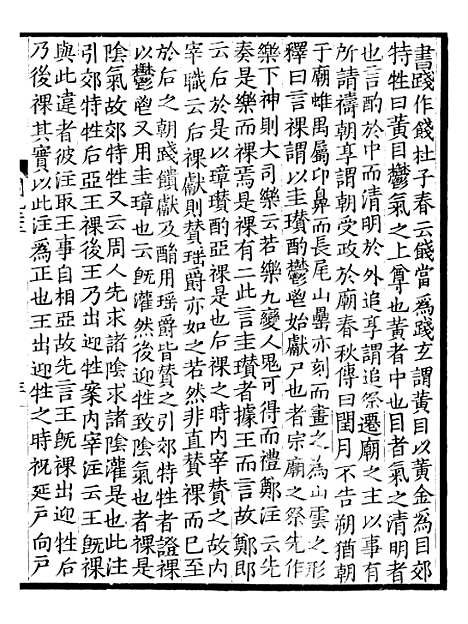 書踐作餞杜子春云餞當爲踐玄謂黃目以黃金爲目郊
特牲曰黃目鬱氣之上尊也黃者中也目者氣之清明者
也言酌於中而清明於外追享謂追祭遷廟之主以事有
所請禱朝享謂朝受政於廟春秋傳曰閏月不告朔猶朝
于廟蜼禺屬卬鼻而長尾山罍亦刻而畫之為山雲之形
釋曰言祼謂以圭瓚酌鬱鬯始獻尸也者宗廟之祭先作
樂下神則大司樂云若樂九變人鬼可得而禮鄭注云先
奏是樂而祼焉是祼有二此言圭瓚者據王而言故鄭即
云后於是以璋瓚酌亞祼是也后祼之時内宰贊之故内
宰職云后祼獻則贊瑶爵亦如之若然非直贊祼而已至
於后之朝踐饋獻及酳用瑶爵皆贊之引郊特牲者證祼
以鬱鬯又用圭璋也云旣灌然後迎牲致陰氣也者祼是
陰氣故郊特牲又云周人先求諸陰求諸陰灌是也此注
引郊特牲后亞王祼後王乃出迎牲案内宰注云王旣祼
與此違者彼注取王事自相亞故先言王旣祼出迎牲后
乃後祼其實以此注爲正也王出迎牲之時祝延尸向戸